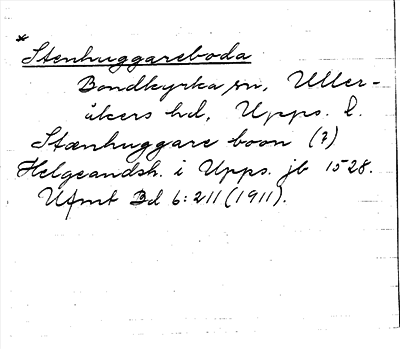 *
Stenhuggareboda
Bondkyrka sn, Uller-
åkers hd, Upps. l.
Stænhuggare boon (?)
Helgeandsh. i Upps. jb 1528.
UFmt Bd 6:211 (1911).